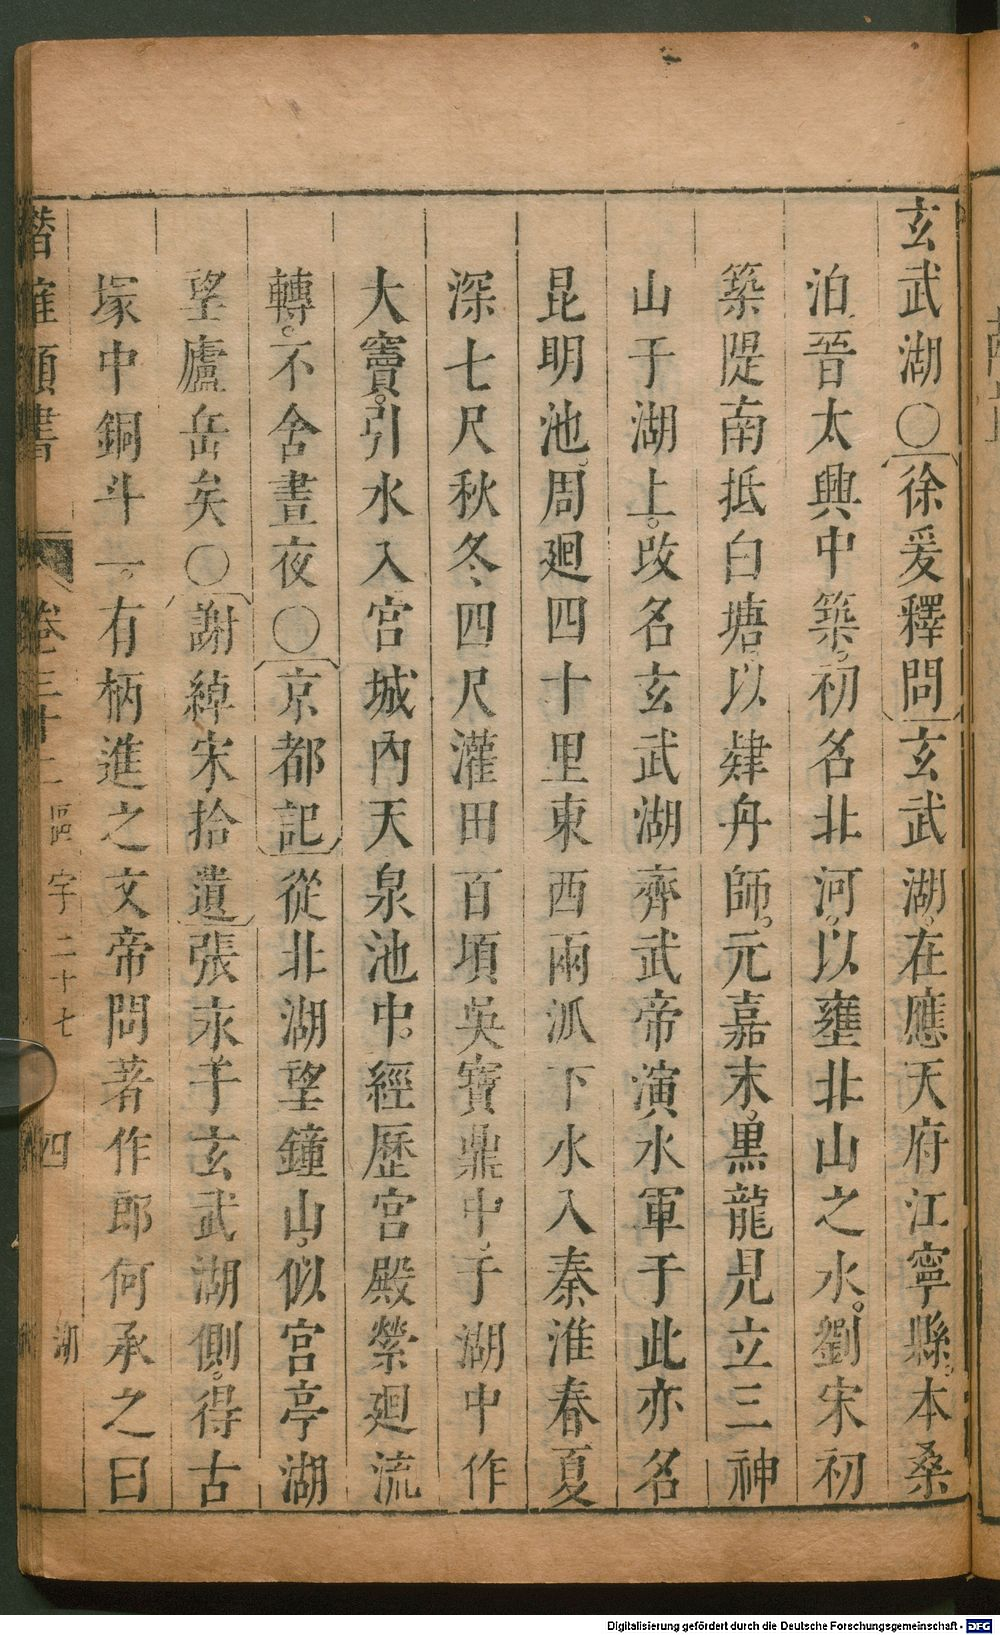 玄武湖○徐爰釋問玄武湖在應天府江寧縣本桑
泊晉太興中築初名北河以壅北山之水劉宋初
築隄南抵白塘以肄舟師元嘉末黑龍見立三神
山于湖上改名玄武湖齊武帝演水軍于此亦名
昆明池周廻四十里東西兩派下水入秦淮春夏
深七尺秋冬四尺灌田百頃吳寶鼎中于湖中作
大竇引水入宮城內天泉池中經歷宮殿縈廻流
轉不舍晝夜○京都記從北湖望鐘山似宮亭湖
望廬岳矣○謝綽宋拾遺張永于玄武湖側得古
塚中銅斗一有柄進之文帝問著作郎何承之曰
潛確類書 卷三十二 區宇二十七 四
Digitalisierung gefördert durch die Deutsche Forschungsgemeinschaft - DFG